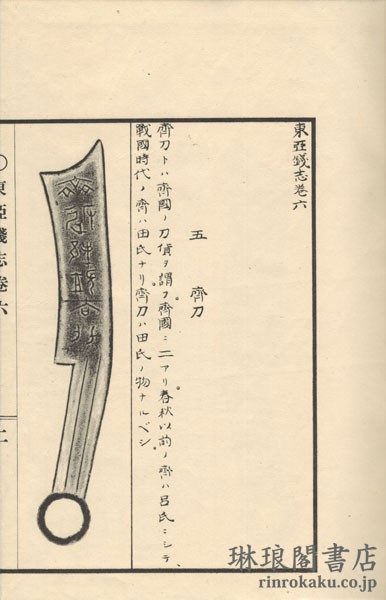 東亞錢志卷六
五 齊刀
齊刀トハ齊國ノ刀貨ヲ謂フ齊國ニ二アリ春秋以前ノ齊ハ呂氏ニシテ、
戰國時代ノ齊ハ田氏ナリ齊刀ハ田氏ノ物ナルベシ
〇東亞錢志卷六
琳琅閣書店
rinrokaku.co.jp